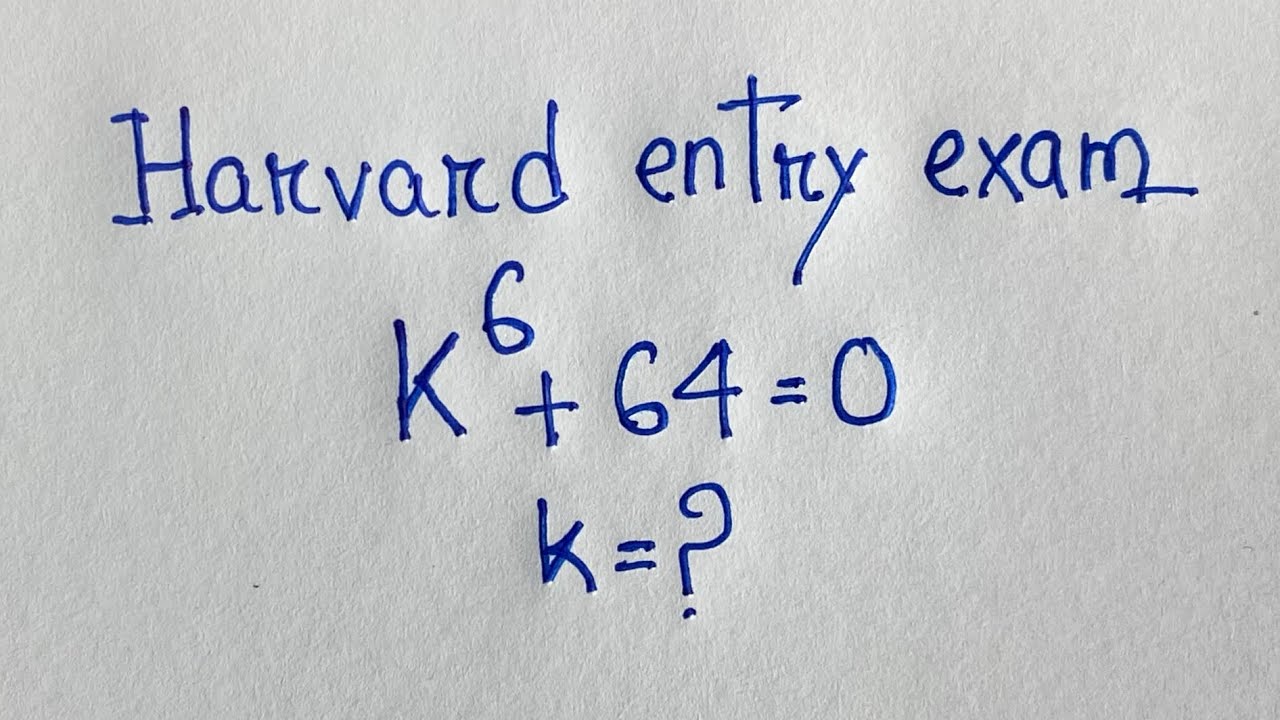 Harvard entry exam
K⁶ + 64 = 0
k = ?